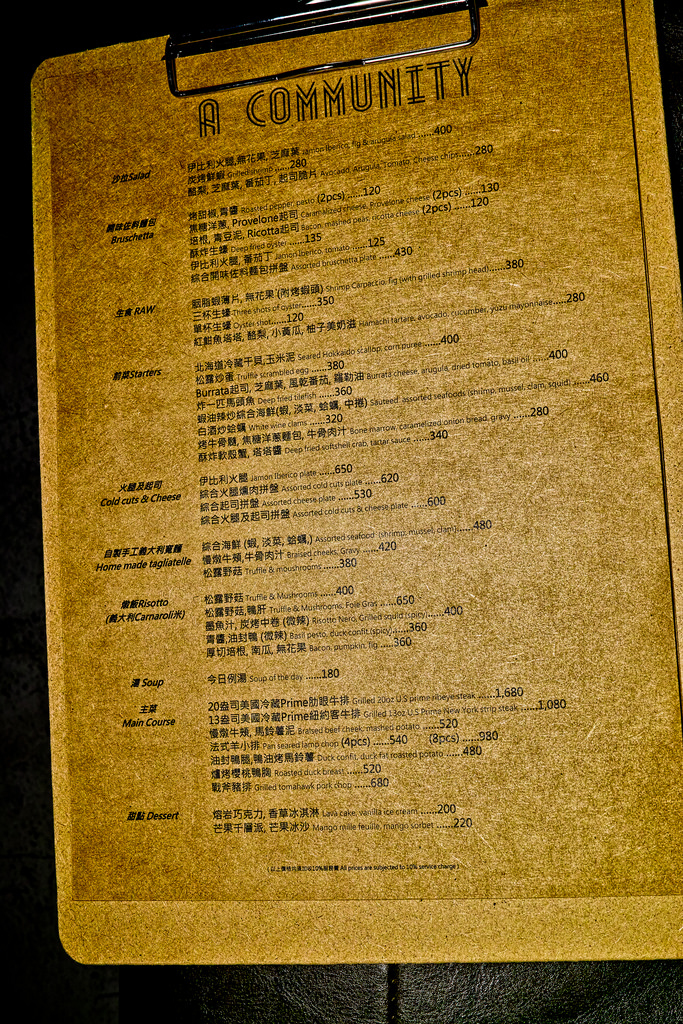 A COMMUNITY
沙拉Salad
伊比利火腿,無花果, 芝麻葉 Jamon Iberico, fig & arugula salad ......400
炭烤鮮蝦 Grilled shrimp ......280
酪梨, 芝麻葉, 番茄丁, 起司脆片 Avocado, Arugula, Tomato, Cheese chips......280
開味佐料麵包
Bruschetta
烤甜椒,青醬 Roasted pepper, pesto (2pcs) ......120
焦糖洋蔥, Provelone起司 Caramelized cheese, Provelone cheese (2pcs) ......130
培根, 青豆泥, Ricotta起司 Bacon, mashed peas, ricotta cheese (2pcs) ......120
酥炸生蠔 Deep fried oyster ......135
伊比利火腿, 番茄丁 Jamon Iberico, tomato ......125
綜合開味佐料麵包拼盤 Assorted bruschetta plate ......430
生食 RAW
胭脂蝦薄片, 無花果 (附烤蝦頭) Shrimp Carpaccio, fig (with grilled shrimp head)......380
三杯生蠔 Three shots of oyster......350
單杯生蠔 Oyster shot......120
紅魽魚塔塔, 酪梨, 小黃瓜, 柚子美奶滋 Hamachi tartare, avocado, cucumber, yuzu mayonnaise......280
前菜Starters
北海道冷藏干貝,玉米泥 Seared Hokkaido scallop, corn puree......400
松露炒蛋 Truffle scrambled egg ......380
Burrata起司, 芝麻葉, 風乾番茄, 羅勒油 Burrata cheese, arugula, dried tomato, basil oil ......400
炸一匹馬頭魚 Deep fried tilefish ......360
蝦油辣炒綜合海鮮(蝦, 淡菜, 蛤蠣, 中捲) Sauteed assorted seafoods (shrimp, mussel, clam, squid) ......460
白酒炒蛤蠣 White wine clams ......320
烤牛骨髓, 焦糖洋蔥麵包, 牛骨肉汁 Bone marrow, caramelized onion bread, gravy ......280
酥炸軟殼蟹, 塔塔醬 Deep fried softshell crab, tartar sauce ......340
火腿及起司
Cold cuts & Cheese
伊比利火腿 Jamon Iberico plate ......650
綜合火腿燻肉拼盤 Assorted cold cuts plate ......620
綜合起司拼盤 Assorted cheese plate ......530
綜合火腿及起司拼盤 Assorted cold cuts & cheese plate ......600
自製手工義大利寬麵
Home made tagliatelle
綜合海鮮 (蝦, 淡菜, 蛤蠣,) Assorted seafood (shrimp, mussel, clam)......480
慢燉牛頰,牛骨肉汁 Braised cheeks, Gravy ......420
松露野菇 Truffle & moushrooms ......380
燉飯Risotto
(義大利Carnaroli米)
松露野菇 Truffle & Mushrooms ......400
松露野菇,鴨肝 Truffle & Mushrooms, Foie Gras ......650
墨魚汁, 炭烤中卷 (微辣) Risotto Nero, Grilled squid (spicy)......400
青醬,油封鴨 (微辣) Basil pesto, duck confit (spicy)......360
厚切培根, 南瓜, 無花果 Bacon, pumpkin, fig ......360
湯 Soup
今日例湯 Soup of the day ......180
主菜
Main Course
20盎司美國冷藏Prime肋眼牛排 Grilled 20oz U.S prime ribeye steak ......1,680
13盎司美國冷藏Prime紐約客牛排 Grilled 13oz U.S Prime New York strip steak ......1,080
慢燉牛頰, 馬鈴薯泥 Braised beef cheek, mashed potato ......520
法式羊小排 Pan seared lamp chop (4pcs) ......540 (8pcs) ......980
油封鴨腿,鴨油烤馬鈴薯 Duck confit, duck fat roasted potato ......480
爐烤櫻桃鴨胸 Roasted duck breast ......520
戰斧豬排 Grilled tomahawk pork chop ......680
甜點 Dessert
熔岩巧克力, 香草冰淇淋 Lava cake, vanilla ice cream ......200
芒果千層派, 芒果冰沙 Mango mille feuille, mango sorbet ......220
( 以上價格均須加收10%服務費 All prices are subjected to 10% service charge )